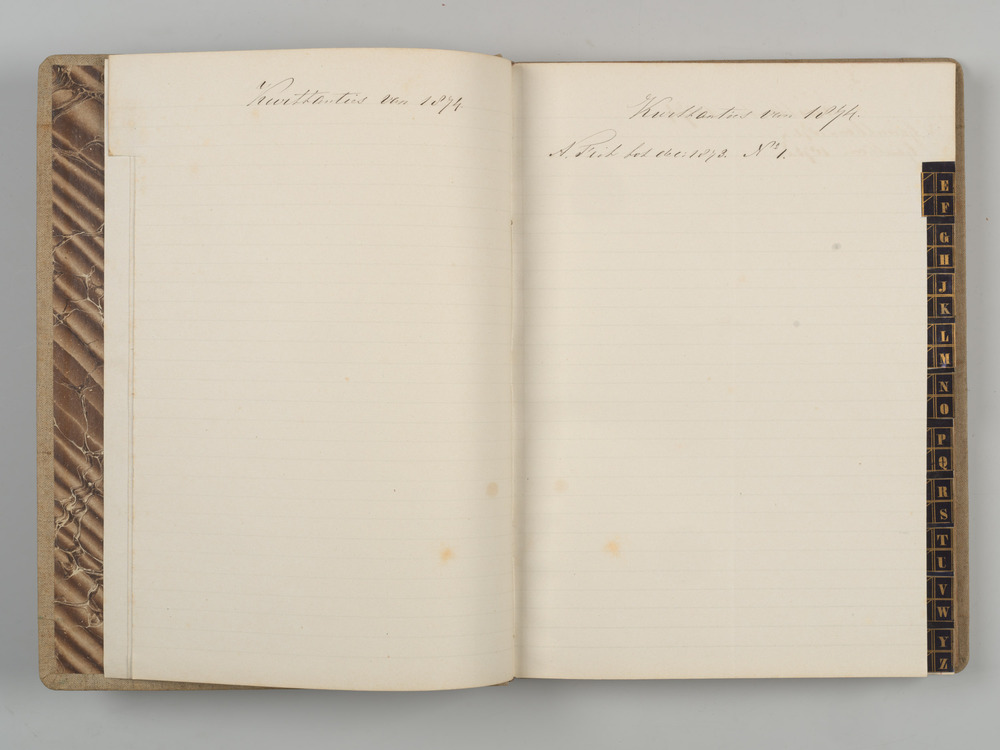 Kwitkanties van 1874
Kwitkanties van 1874.
A. Fick tot dec: 1873. No 1.
E
F
G
H
J
K
L
M
N
O
P
Q
R
S
T
U
V
W
Y
Z